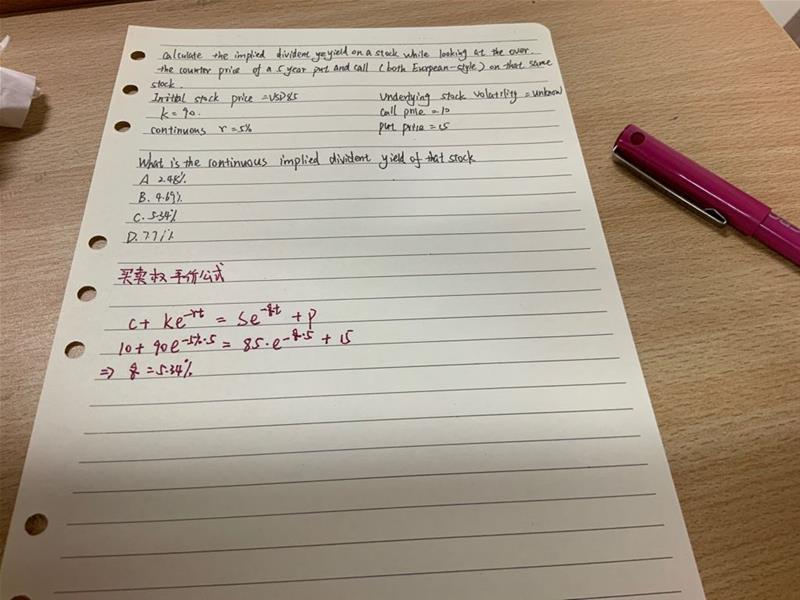 Calculate the implied divident yeyield on a stock while looking at the over.
the counter price of a 5 year put and call (both European-style) on that same
stock.
Initial stock price = USD85 Underlying stock volatility = unknow
k = 90. call price = 10
continuous r = 5% put price = 15
What is the continuous implied divident yield of that stock
A 2.48%
B. 4.69%
C. 5.34%
D. 7.71%
买卖权平价公式
C + ke^-rt = Se^-qt + p
10 + 90e^-5%·5 = 85·e^-q·5 + 15
⇒ q = 5.34%